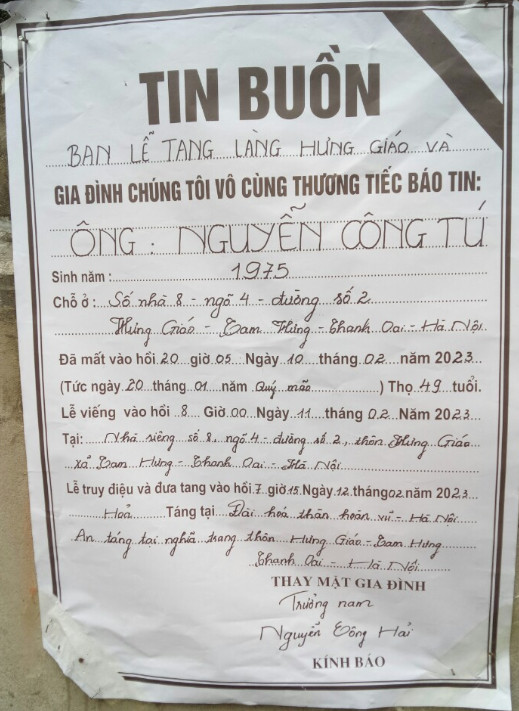 TIN BUỒN
BAN LỄ TANG LÀNG HƯNG GIÁO VÀ
GIA ĐÌNH CHÚNG TÔI VÔ CÙNG THƯƠNG TIẾC BÁO TIN:
ÔNG: NGUYỄN CÔNG TÚ
Sinh năm: 1975
Chỗ ở: Số nhà 8 - ngõ 4 - đường số 2
Hưng Giáo - Tam Hưng - Thanh Oai - Hà Nội
Đã mất vào hồi 20 giờ 05 Ngày 10 tháng 02 năm 2023
(Tức ngày 20 tháng 01 năm Quý mão) Thọ 49 tuổi.
Lễ viếng vào hồi 8 Giờ 00 Ngày 11 tháng 02 Năm 2023
Tại: Nhà riêng số 8, ngõ 4 - đường số 2, thôn Hưng Giáo
xã Tam Hưng - Thanh Oai - Hà Nội
Lễ truy điệu và đưa tang vào hồi 7 giờ 15 Ngày 12 tháng 02 năm 2023
Hoả Táng tại Đài hoá thân hoàn vũ - Hà Nội
An táng tại nghĩa trang thôn Hưng Giáo - Tam Hưng
Thanh Oai - Hà Nội
THAY MẶT GIA ĐÌNH
Trưởng nam
Nguyễn Công Hải
KÍNH BÁO